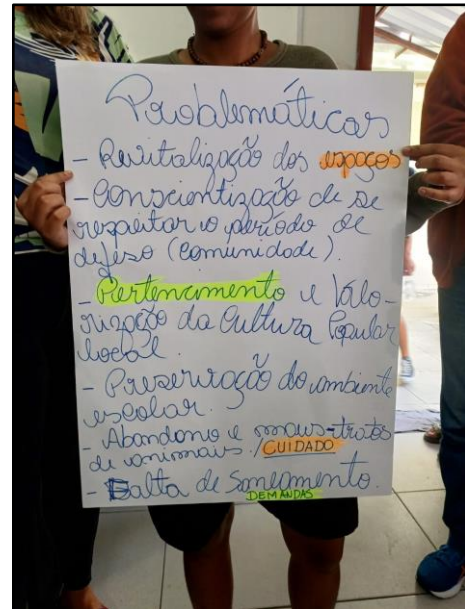 Problemáticas
- Revitalização dos espaços
- Conscientização de se
respeitar o período de
defeso (comunidade).
- Pertencimento e Valo-
rização da Cultura Popular
local.
- Preservação do ambiente
escolar.
- Abandono e maus-tratos
de animais./CUIDADO
- Falta de Saneamento.
DEMANDAS